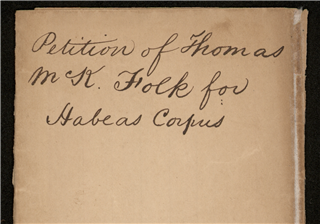 Petition of Thomas
McK. Folk for
Habeas Corpus